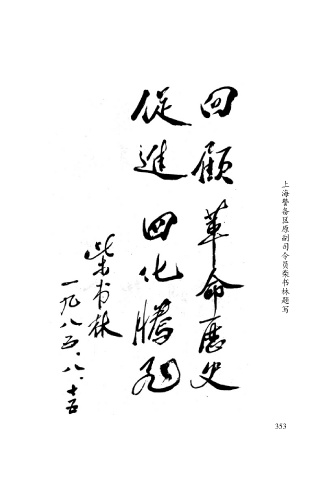 回顾革命历史
促進四化腾飞
柴书林
一九八五.八.十五
上海警备区原副司令员柴书林题写
353